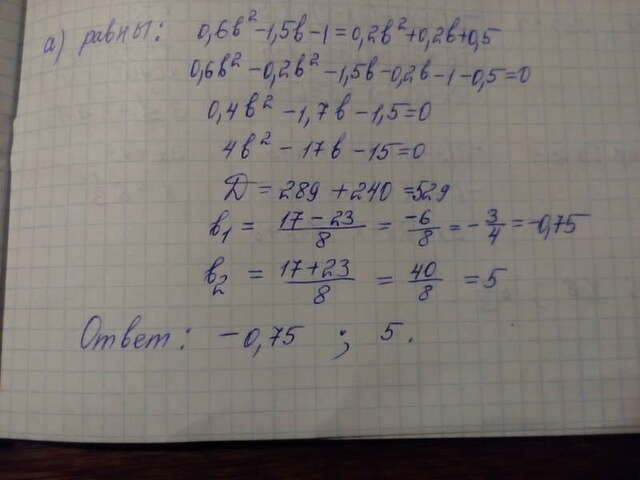 а) равны: 0,6в²-1,5в-1=0,2в²+0,2в+0,5
0,6в²-0,2в²-1,5в-0,2в-1-0,5=0
0,4в²-1,7в-1,5=0
4в²-17в-15=0
Д=289+240=529
в₁ = (17-23)/8 = -6/8 = -3/4 = -0,75
в₂ = (17+23)/8 = 40/8 = 5
Ответ: -0,75 ; 5.